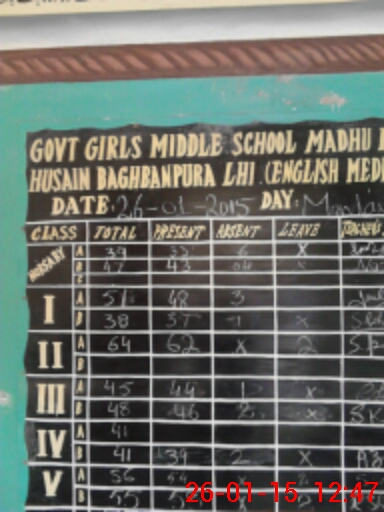 GOVT GIRLS MIDDLE SCHOOL MADHU
HUSAIN BAGHBANPURA LHI (ENGLISH MED
DATE: 26-01-2015 DAY:
CLASS TOTAL PRESENT ABSENT LEAVE
NURSARY A 39 33 6 X
B 47 43 04 X
C
I A 51 48 3
B 38 37 1 X
II A 64 62 X 2
B
III A 45 44 1 X
B 48 46 2 X
IV A 41
B 41 39 2 X
V A 56
B 55
26-01-15 12:47